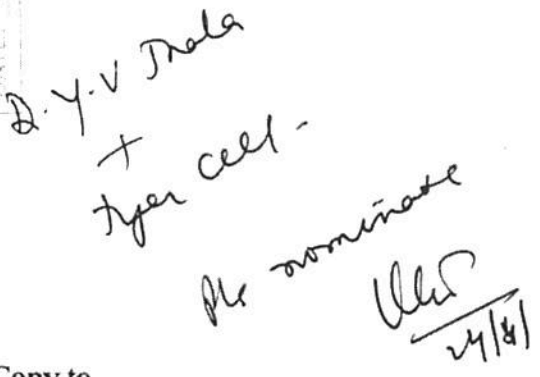 D. Y. V Jhala
+
tiger cell -
Plz nominate
24/8/
Copy to